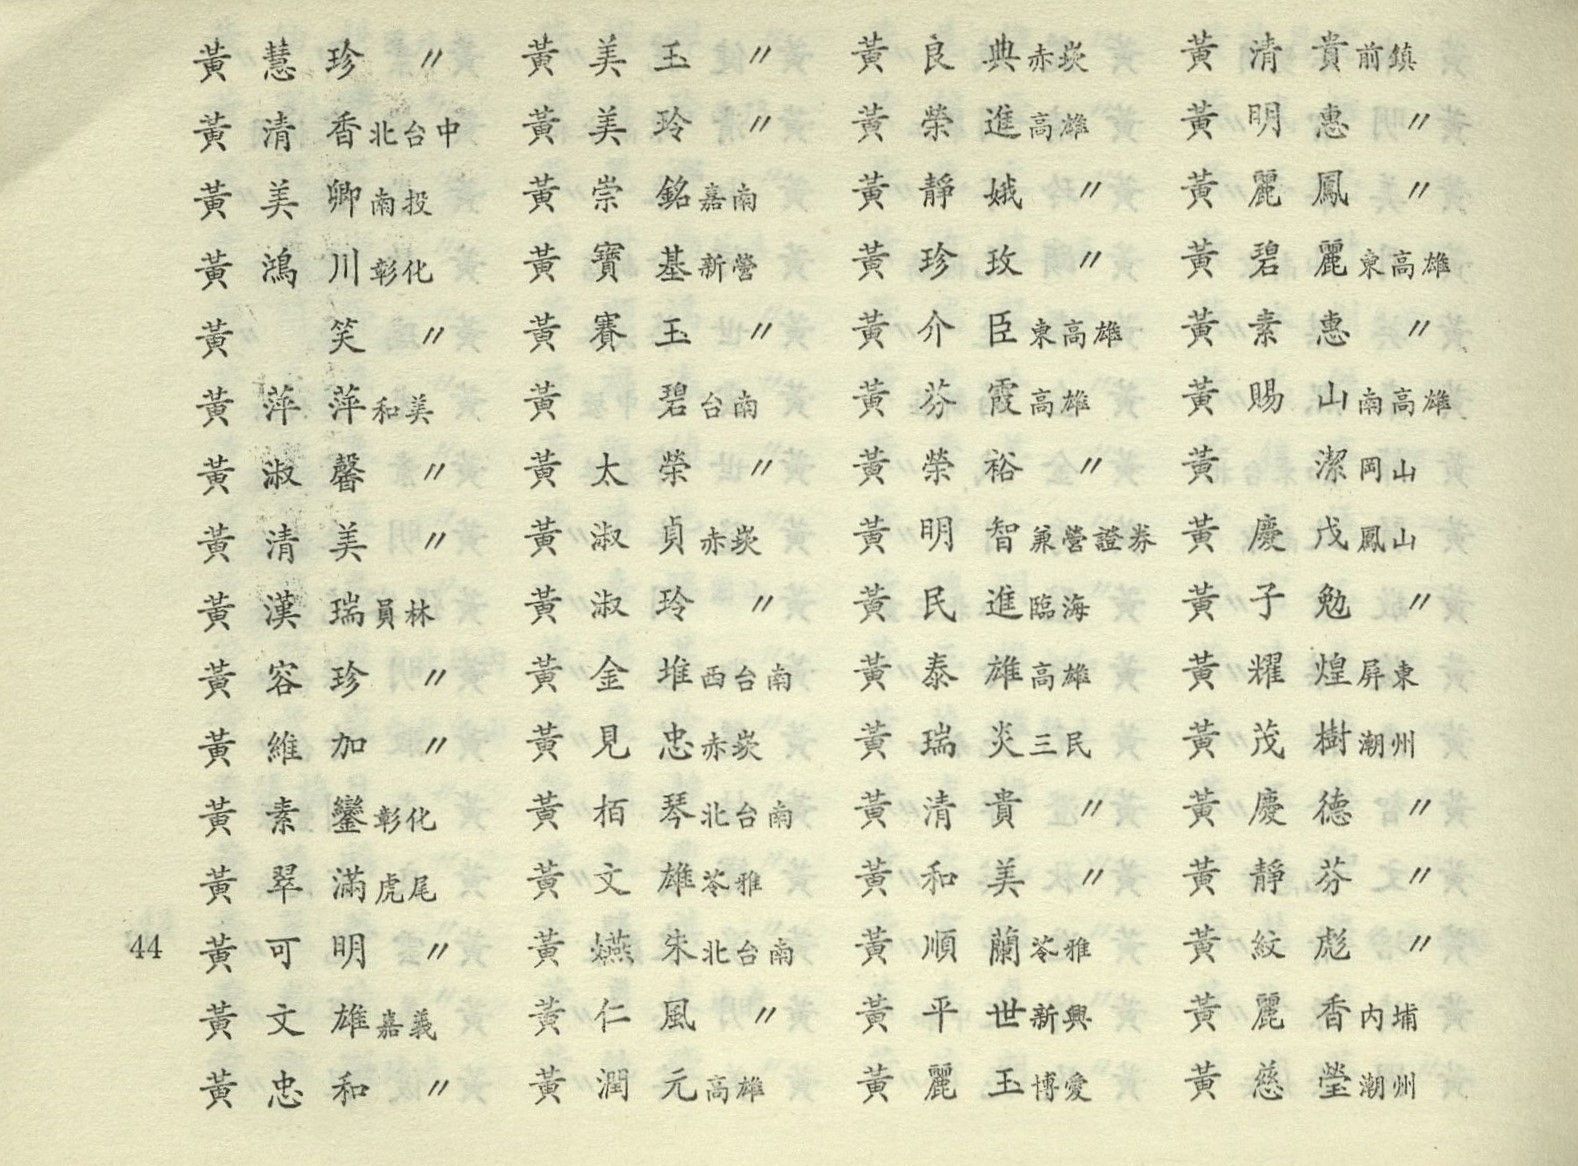 黃慧珍 〃
黃清香 北台中
黃美卿 南投
黃鴻川 彰化
黃笑 〃
黃萍萍 和美
黃淑馨 〃
黃清美 〃
黃漢瑞 員林
黃容珍 〃
黃維加 〃
黃素鑾 彰化
黃翠滿 虎尾
黃可明 〃
黃文雄 嘉義
黃忠和 〃
黃美玉 〃
黃美玲 〃
黃崇銘 嘉南
黃寶基 新營
黃賽玉 〃
黃碧 台南
黃太榮 〃
黃淑貞 赤崁
黃淑玲 〃
黃金堆 西台南
黃見忠 赤崁
黃栢琴 北台南
黃文雄 苓雅
黃嬿朱 北台南
黃仁風 〃
黃潤元 高雄
黃良典 赤崁
黃榮進 高雄
黃靜娥 〃
黃珍玫 〃
黃介臣 東高雄
黃芬霞 高雄
黃榮裕 〃
黃明智 兼營證券
黃民進 臨海
黃泰雄 高雄
黃瑞炎 三民
黃清貴 〃
黃和美 〃
黃順蘭 苓雅
黃平世 新興
黃麗玉 博愛
黃清貴 前鎮
黃明惠 〃
黃麗鳳 〃
黃碧麗 東高雄
黃素惠 〃
黃賜山 南高雄
黃潔 岡山
黃慶戊 鳳山
黃子勉 〃
黃耀煌 屏東
黃茂樹 潮州
黃慶德 〃
黃靜芬 〃
黃紋彪 〃
黃麗香 內埔
黃慈瑩 潮州
44